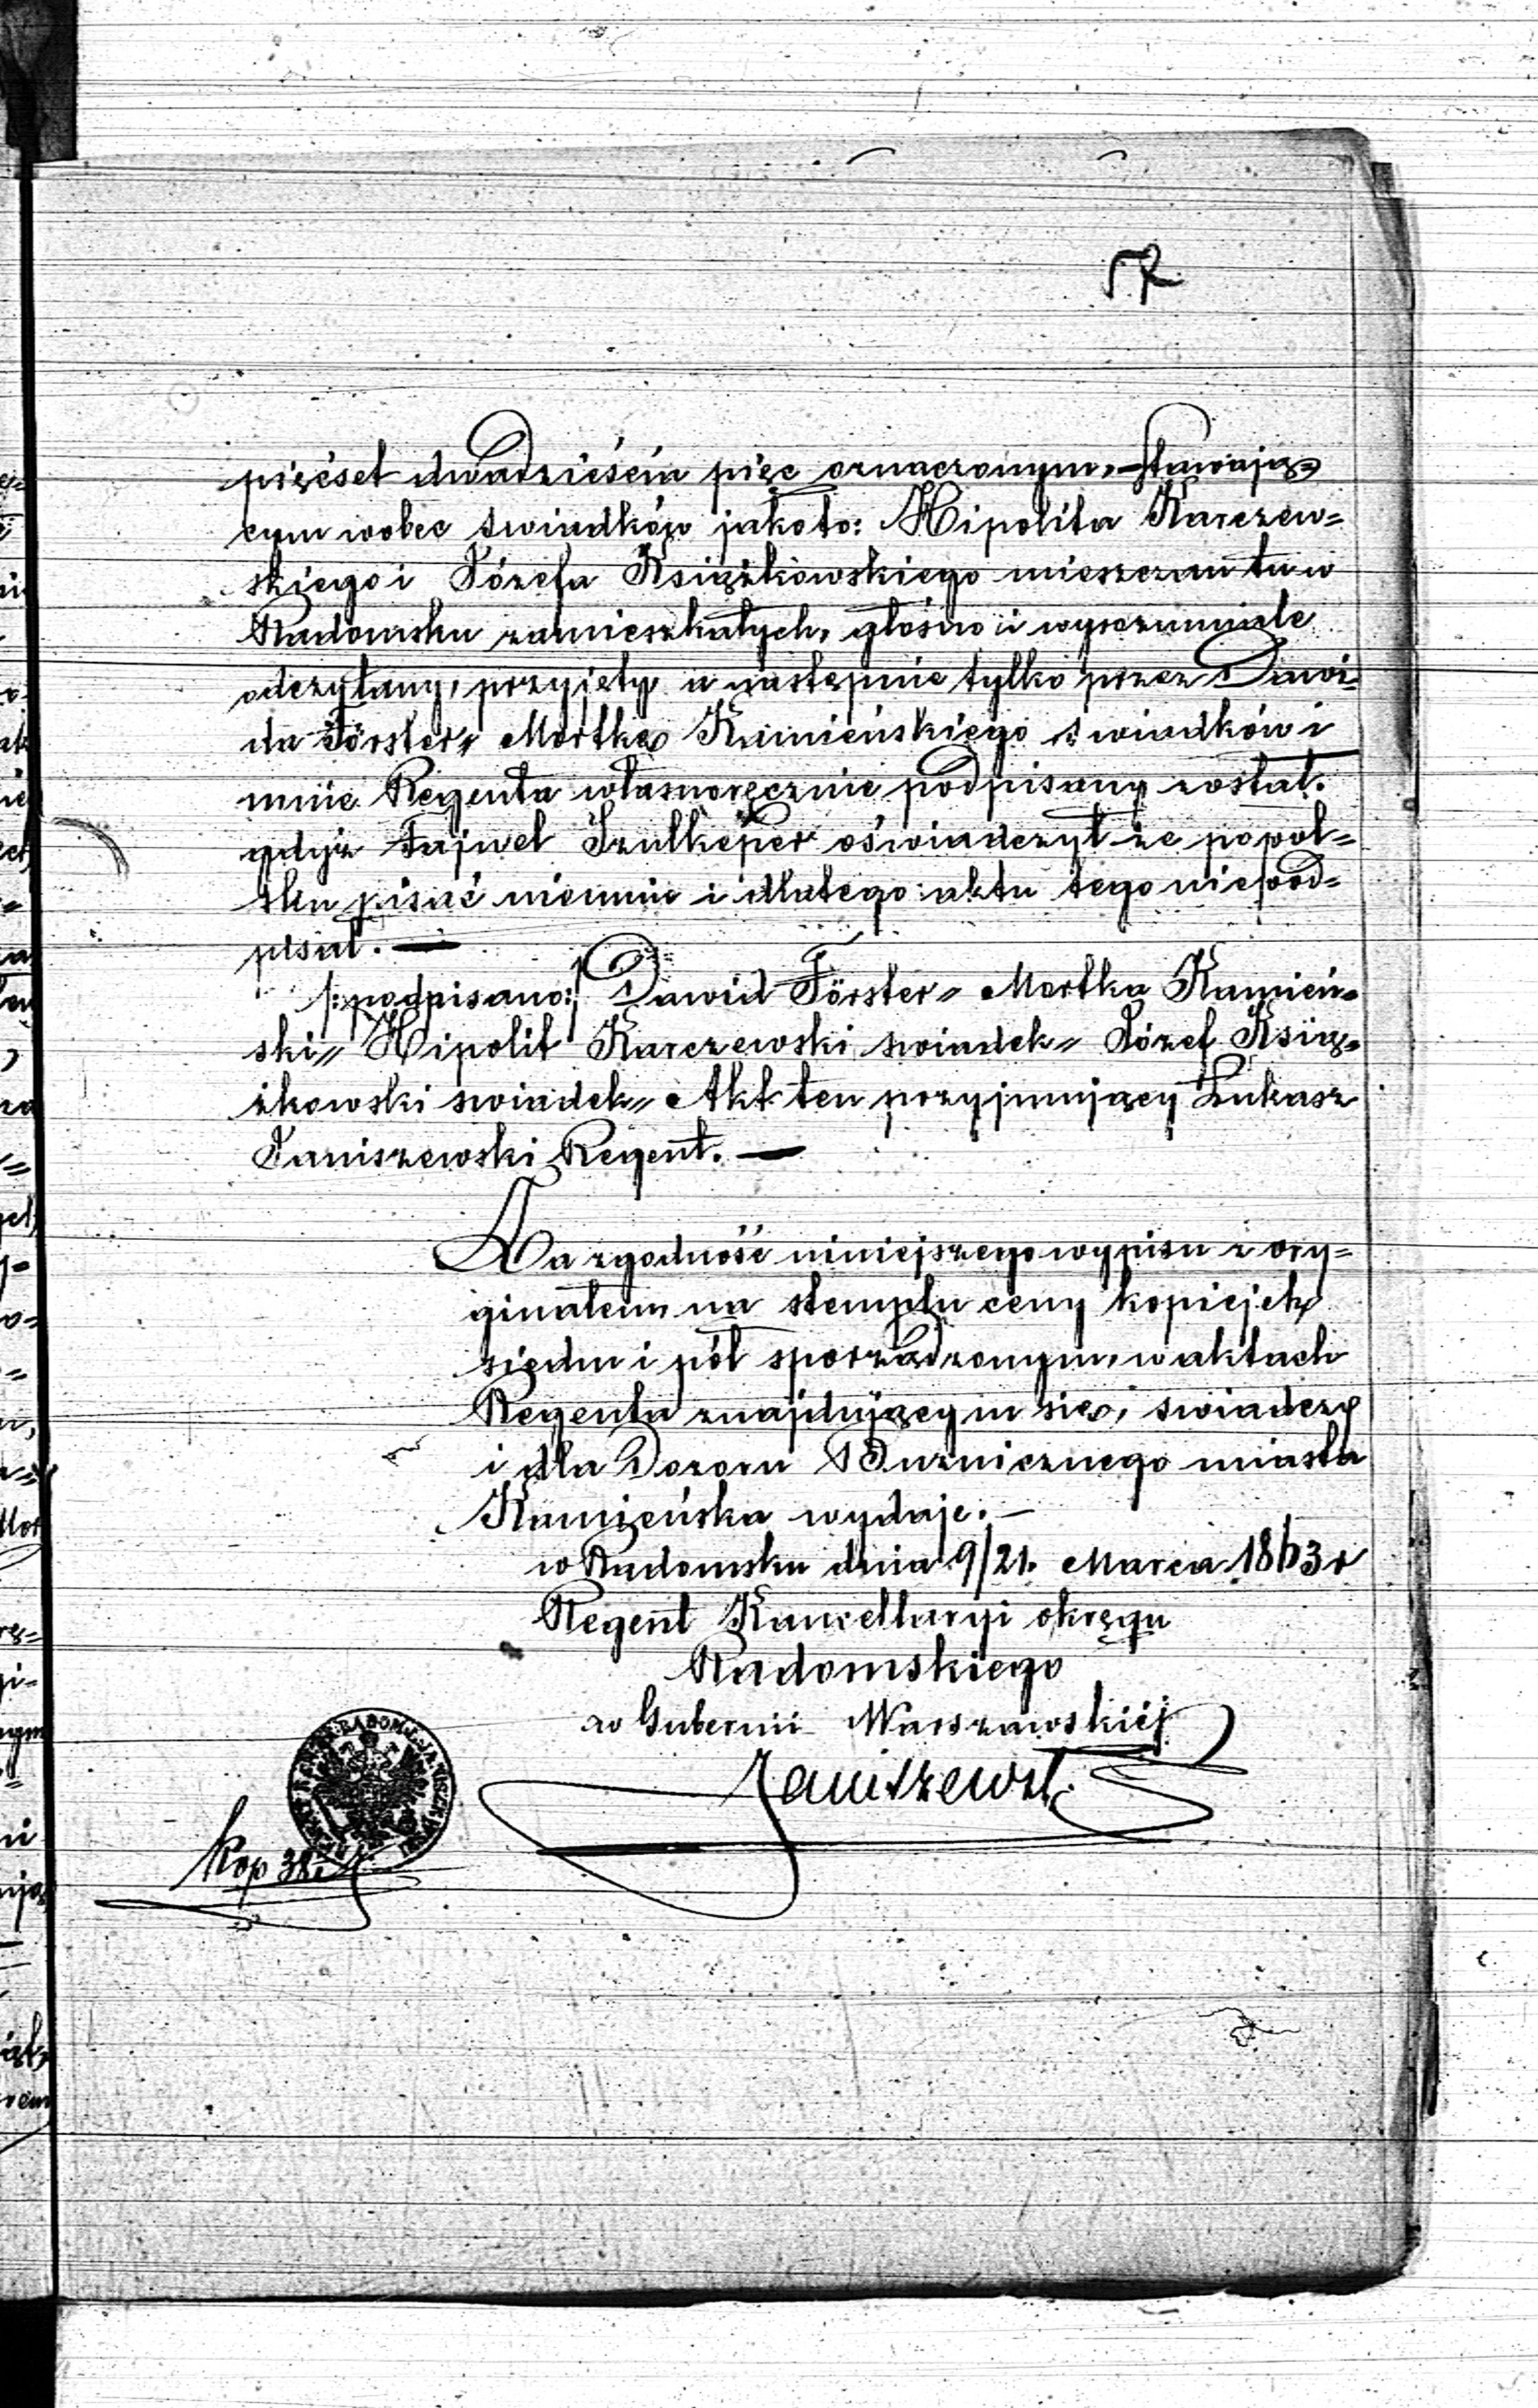 57
pięćset dwadzieścia pięc oznaczonym, stawają=
cym wobec swiadków jakoto: Hipolita Karczew=
skiego i Józefa Książkowskiego mieszczan tu w
Radomsku zamieszkałych, głośno i wyrozumiale
odczytany, przyjęty a następnie tylko przez Dawi=
da Förster„ Mortkę Kamieńskiego swiadków i
mnie Regenta własnoręcznie podpisany został.
gdyż Fajwel Szulkeper oświadczył że popol=
sku pisać nieumie i dlatego aktu tego niepod=
pisał. —
/:podpisano:/ Dawid Förster„ Mortka Kamień=
ski„ Hipolit Karczewski swiadek„ Józef Ksią=
żkowski swiadek„ Akt ten przyjmujący Łukasz
Janiszewski Regent. —
Za zgodność niniejszego wypisu z ory=
ginałem na stemplu ceny kopiejek
siedm i pół sporządzonym, w aktach
Regenta znajdującym się, swiadczę
i dla Dozoru Bużnicznego miasta
Kamieńska wydaje. —
w Radomsku dnia 9/21. Marca 1863 r
Regent Kancellaryi okręgu
Radomskiego
w Gubernii Warszawskiéj
Janiszewski
Kop 38